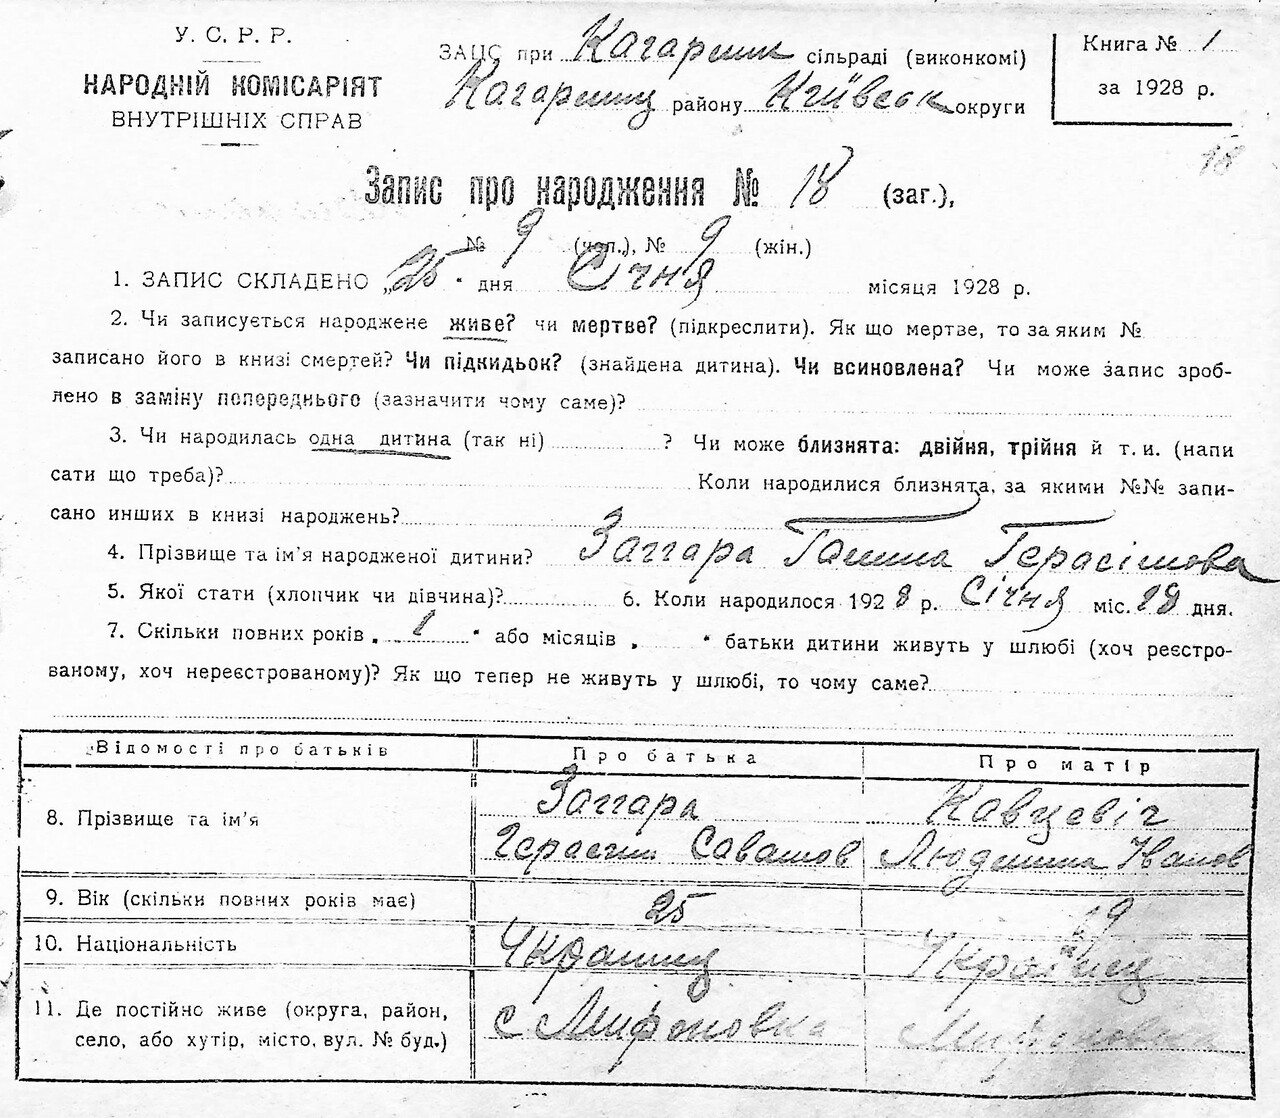 У. С. Р. Р.
НАРОДНІЙ КОМІСАРІЯТ
ВНУТРІШНІХ СПРАВ
ЗАЦС при Кагарлик сільраді (виконкомі)
Кагарлиц району Київськ округи
Книга № 1
за 1928 р.
18
Запис про народження № 18 (заг.),
№ 9 (чол.), № 9 (жін.)
1. ЗАПИС СКЛАДЕНО „25" дня Січня місяця 1928 р.
2. Чи записується народжене живе? чи мертве? (підкреслити). Як що мертве, то за яким №
записано його в книзі смертей? Чи підкидьок? (знайдена дитина). Чи всиновлена? Чи може запис зроб-
лено в заміну попереднього (зазначити чому саме)?
3. Чи народилась одна дитина (так ні) ? Чи може близнята: двійня, трійня й т. и. (напи
сати що треба)? Коли народилися близнята, за якими №№ запи-
сано инших в книзі народжень?
4. Прізвище та ім'я народженої дитини? Заггара Галина Герасімова
5. Якої стати (хлопчик чи дівчина)? 6. Коли народилося 1928 р. Січня міс. 18 дня.
7. Скільки повних років „ 1 " або місяців „ " батьки дитини живуть у шлюбі (хоч реєстро-
ваному, хоч нереєстрованому)? Як що тепер не живуть у шлюбі, то чому саме?
Відомості про батьків Про батька Про матір
8. Прізвище та ім'я Заггара Кавцевіч
Герасим Савашов Людмила Іванов
9. Вік (скільки повних років має) 25 19
10. Національність Українц Українц
11. Де постійно живе (округа, район, с Мироновка Мироновка
село, або хутір, місто, вул. № буд.)